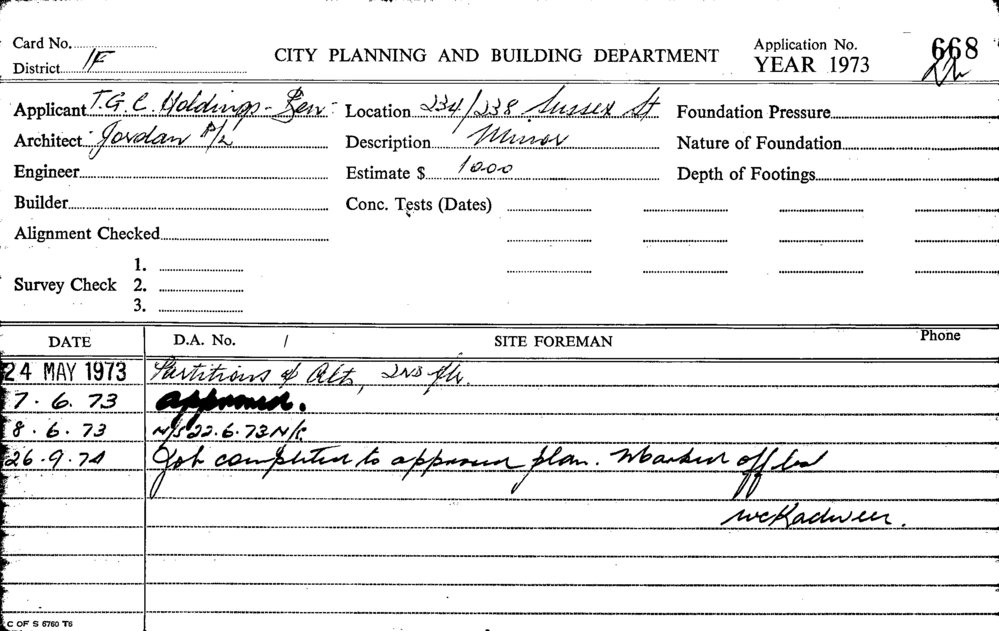 Card No.
District 1F
CITY PLANNING AND BUILDING DEPARTMENT
Application No. 668
YEAR 1973
Applicant T.G.C. Holdings -
Location 234/238 Sussex St
Foundation Pressure
Architect Jordan P/L
Description Minor
Nature of Foundation
Engineer
Estimate $ 1000
Depth of Footings
Builder
Conc. Tests (Dates)
Alignment Checked
Survey Check 1.
2.
3.
DATE D.A. No. / SITE FOREMAN Phone
24 MAY 1973 Partitions & Alts, 2nd flr.
7.6.73 Approved.
8.6.73 N/S 22.6.73 N/S
26.9.74 Job completed to approved plan. Marked off
C OF S 6760 T6